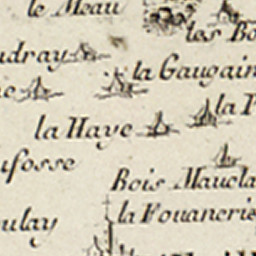 le Meau
les Bo
udray
la Gaugain
ie
la F
la Haye
ufosse
Bois Maucla
la Fouanerie
oulay